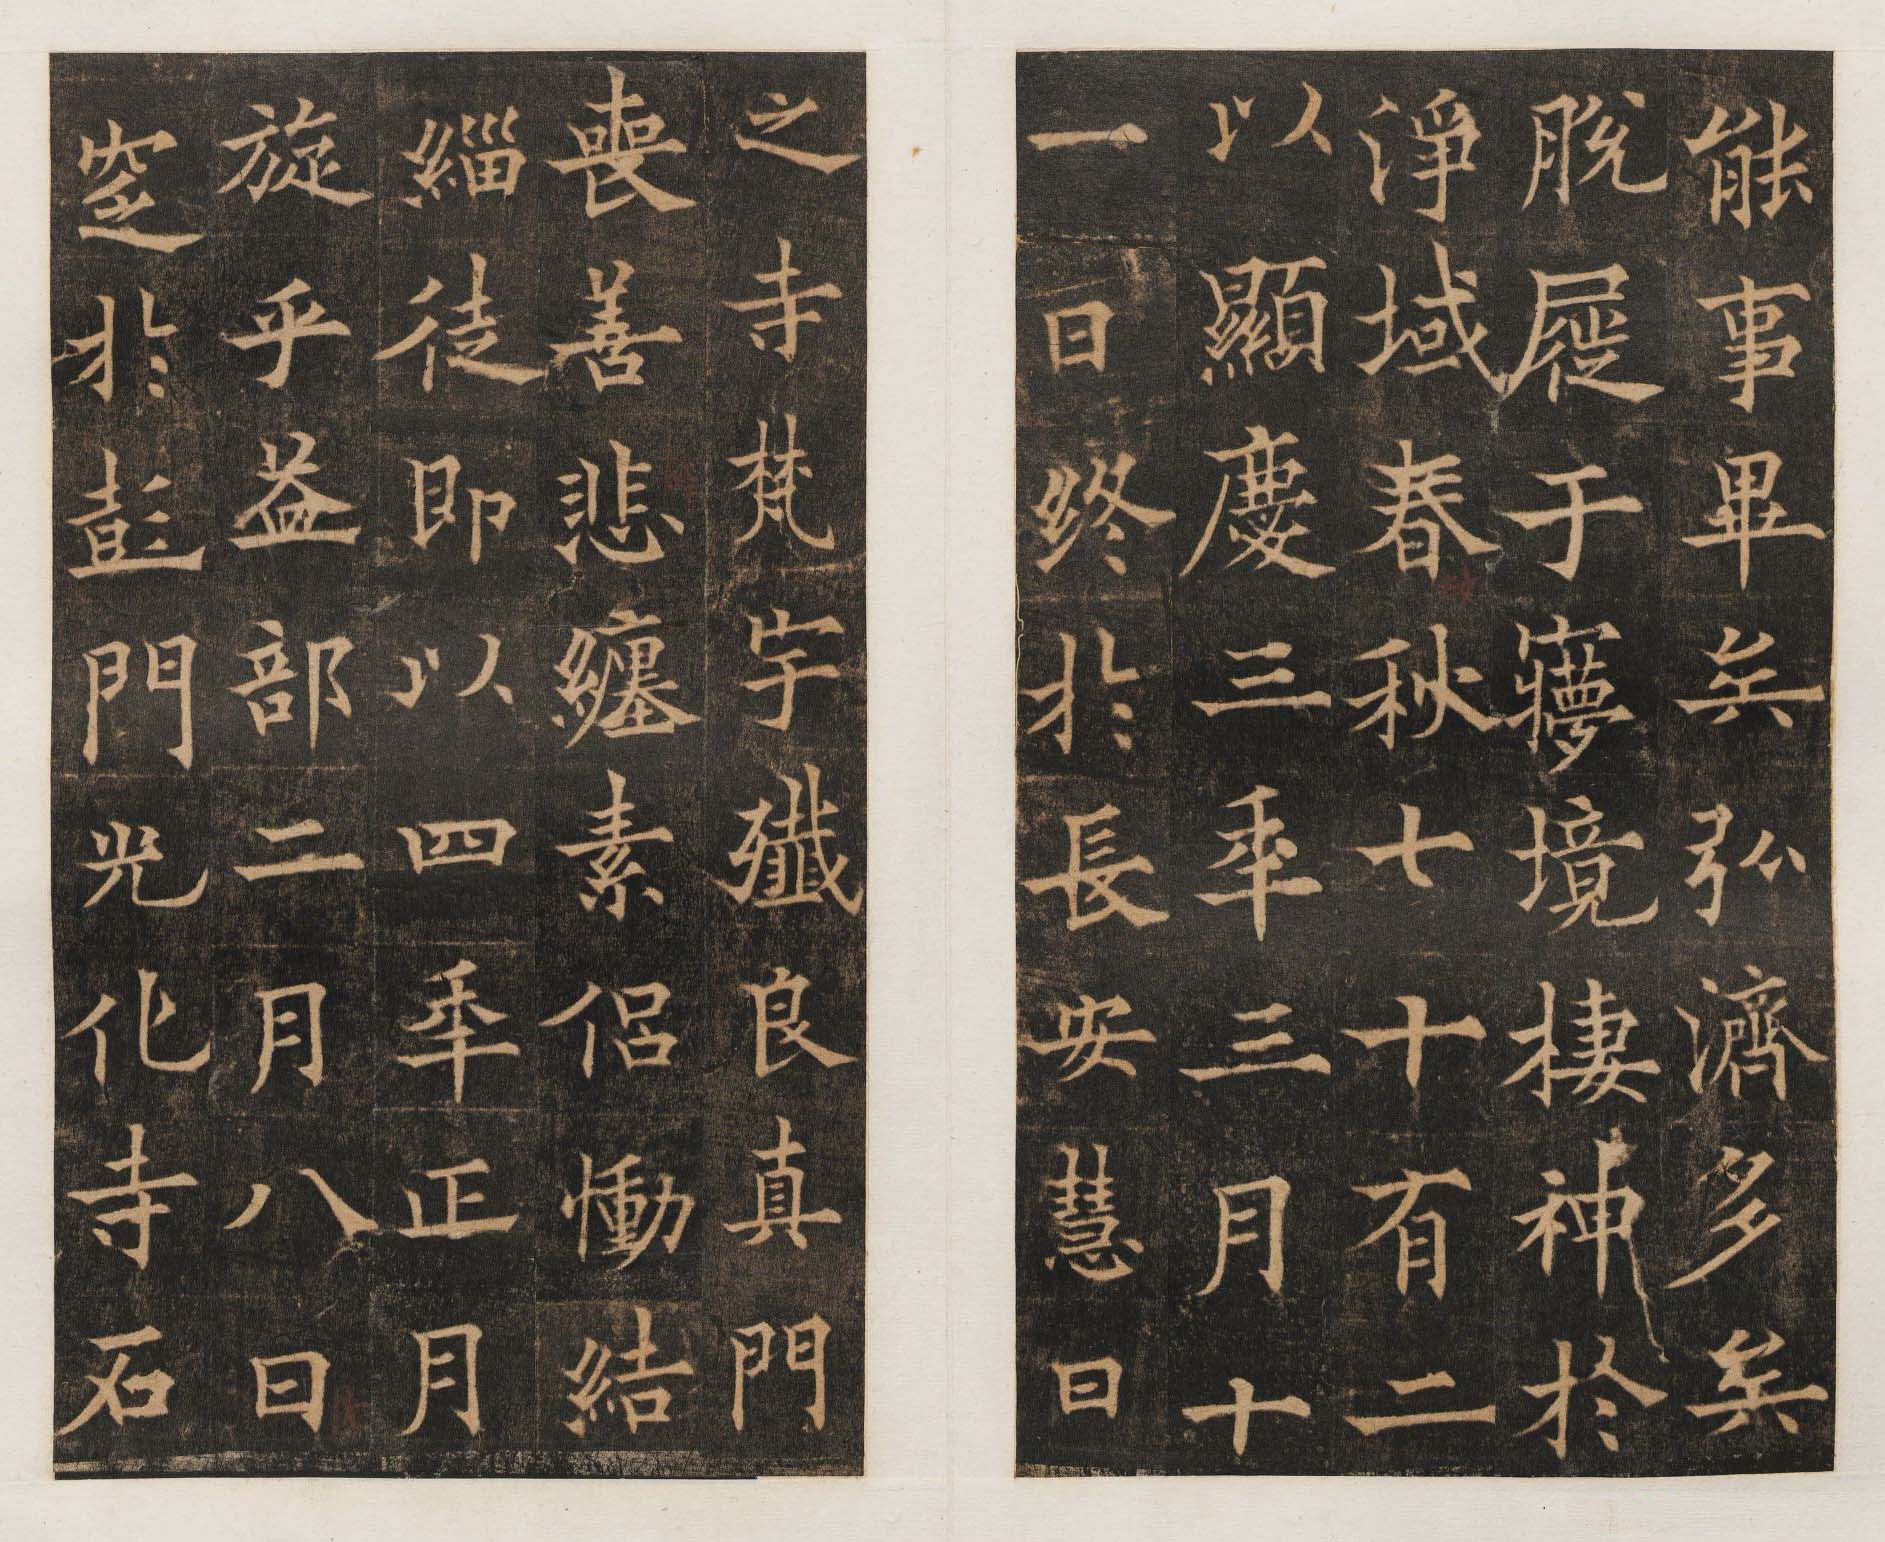 能事畢矣弘濟多矣
脫屣于㝱境棲神於
淨域春秋七十有二
以顯慶三年三月十
一日終於長安慧日
之寺梵宇殲良真門
喪善悲纏素侶慟結
緇徒即以四年正月
旋乎益部二月八日
窆於彭門光化寺石